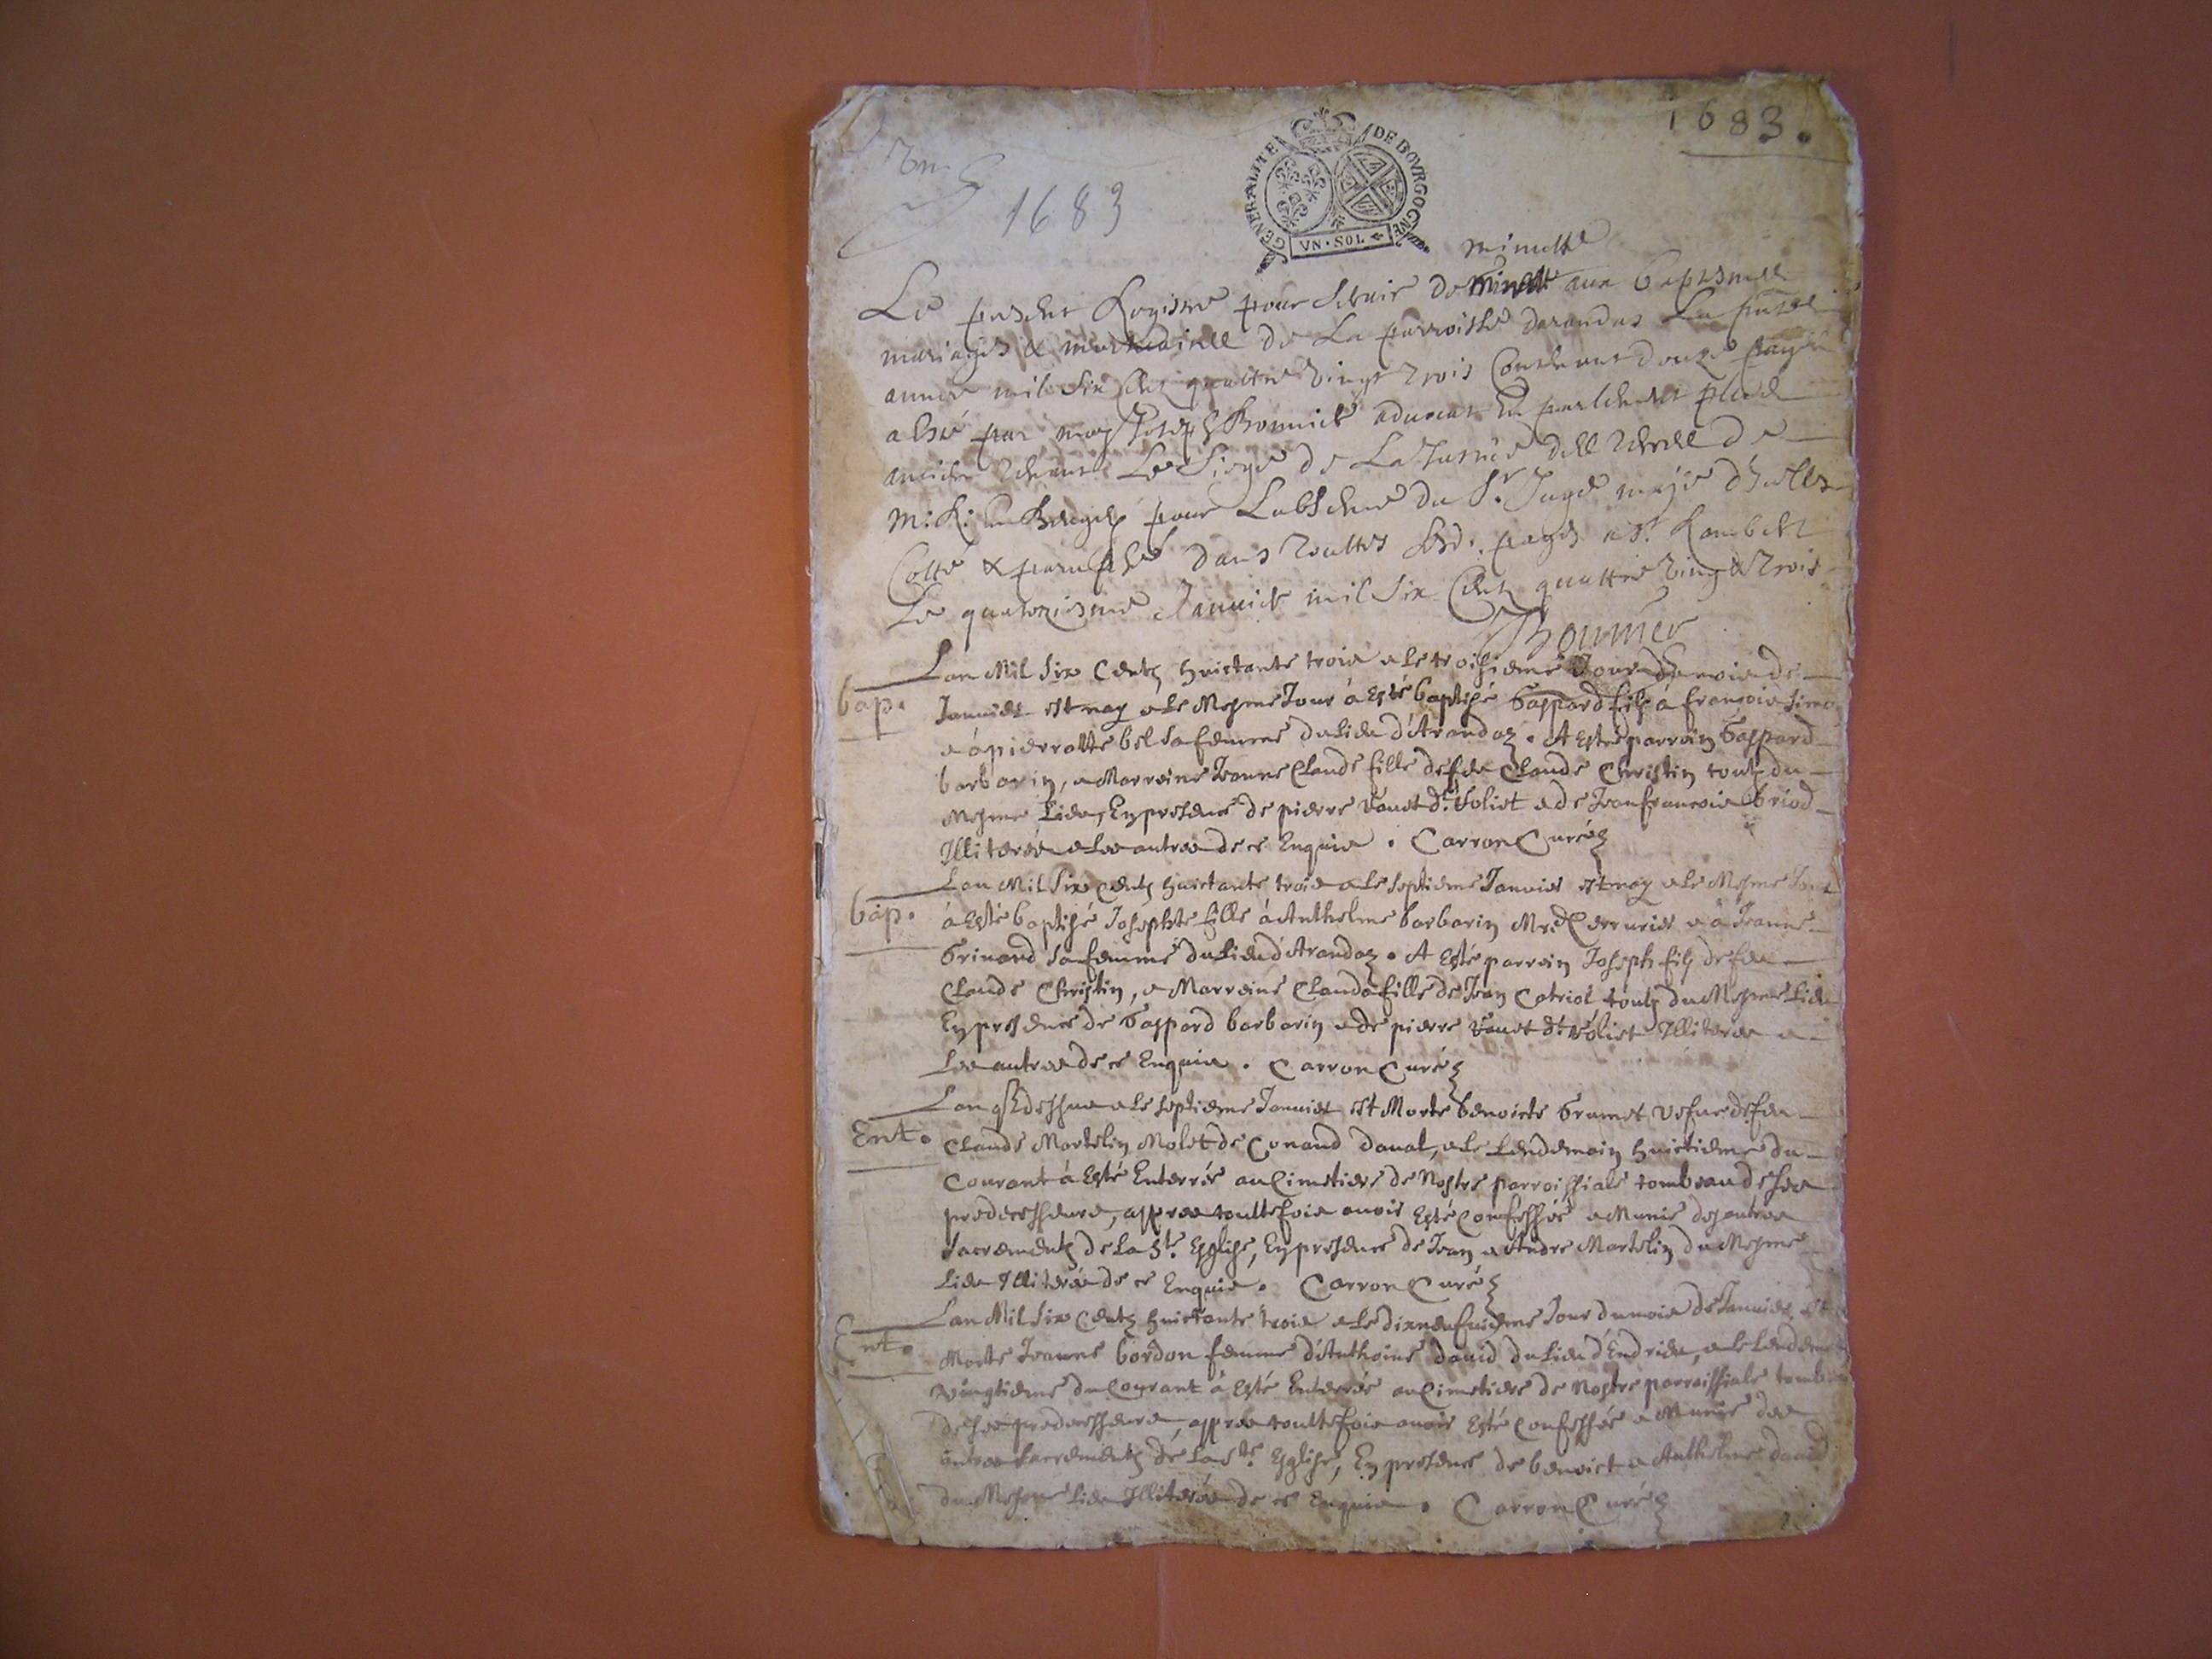 1683.
1683
GENERALITE DE BOVRGOGNE
VN · SOL
minutte
Le present Registre pour servir de minutte aux baptesmes
mariages & mortuaires de La parroisse darandas La presente
année mil six cent quattre vingt trois Contenant douze pages
a esté par moy Joseph Bonnier aduocat en parlement plus
ancien tenant Le Siege de La Justice des terres de
M: R: en Beugey pour Labsence du Sr. Juge maje d'icelles
Cotté & paraphé dans touttes sesd. pages a St. Rambert
Le quatorziesme Januier mil six cent quattre vingt & trois
Bonnier
Lan Mil Six Centz huictante trois & le troisieme Jour du mois de
bap. Januier est nay & le Mesme Jour á Esté baptisé Gaspard filz á françois Simo
& á pierrotte bel sa femme du lieu d'Arandaz. A Esté parrein Gaspard
barbarin, & Marreine Jeanne Claude fille de feu Claude Christin toutz du
Mesme Lieu, En presence de pierre vanet dt. voliet & de Jean francois briod
Illiterés & les autres de ce Enquis. Carron Curéz
Lan Mil Six Centz huictante trois & le septieme Januier est nay & le Mesme Jour
bap. á Esté baptisé Josephte fille á Anthelme barbarin Mre. Serrurier & á Jeanne
Grinand sa femme du Lieu d'Arandaz. A Esté parrein Joseph filz de feu
Claude Christin, & Marreine Clauda fille de Jean Catriol toutz du Mesme Lieu
En presence de Gaspard barbarin & de pierre vanet dt. voliet Illiteres &
Les autres de ce Enquis. Carron Curéz
Lan q̃ dessus & le septieme Januier est Morte benoicte Grumet vefue de feu
Ent. Claude Martelin Molet de Conand daual, & le Lendemain huictieme du
Courant á Esté Enterrée au Cimetiere de Nostre parroissiale tombeau de ses
predecesseurs, appres touttefois auoir Esté Confessée & Munie des autres
Sacrementz de la Ste. Esglise, En presence de Jean & André Martelin du Mesme
Lieu Illiterés de ce Enquis. Carron Curéz
Lan Mil Six Centz huictante trois & le dixneufuieme Jour du mois de Januier est
Ent. Morte Jeanne bordon femme d'Anthoine dauid du Lieu d'Endrieu, & le Lendem
vingtieme du Courant á Esté Enterrée au Cimetiere de Nostre parroissiale tomb
de ses predecesseurs, appres touttefois auoir Esté Confessée & Munie des
autres Sacrementz de la Ste. Esglise, En presence de benoict & Anthelme dauid
du Mesme Lieu Illiterés de ce Enquis. Carron Curéz